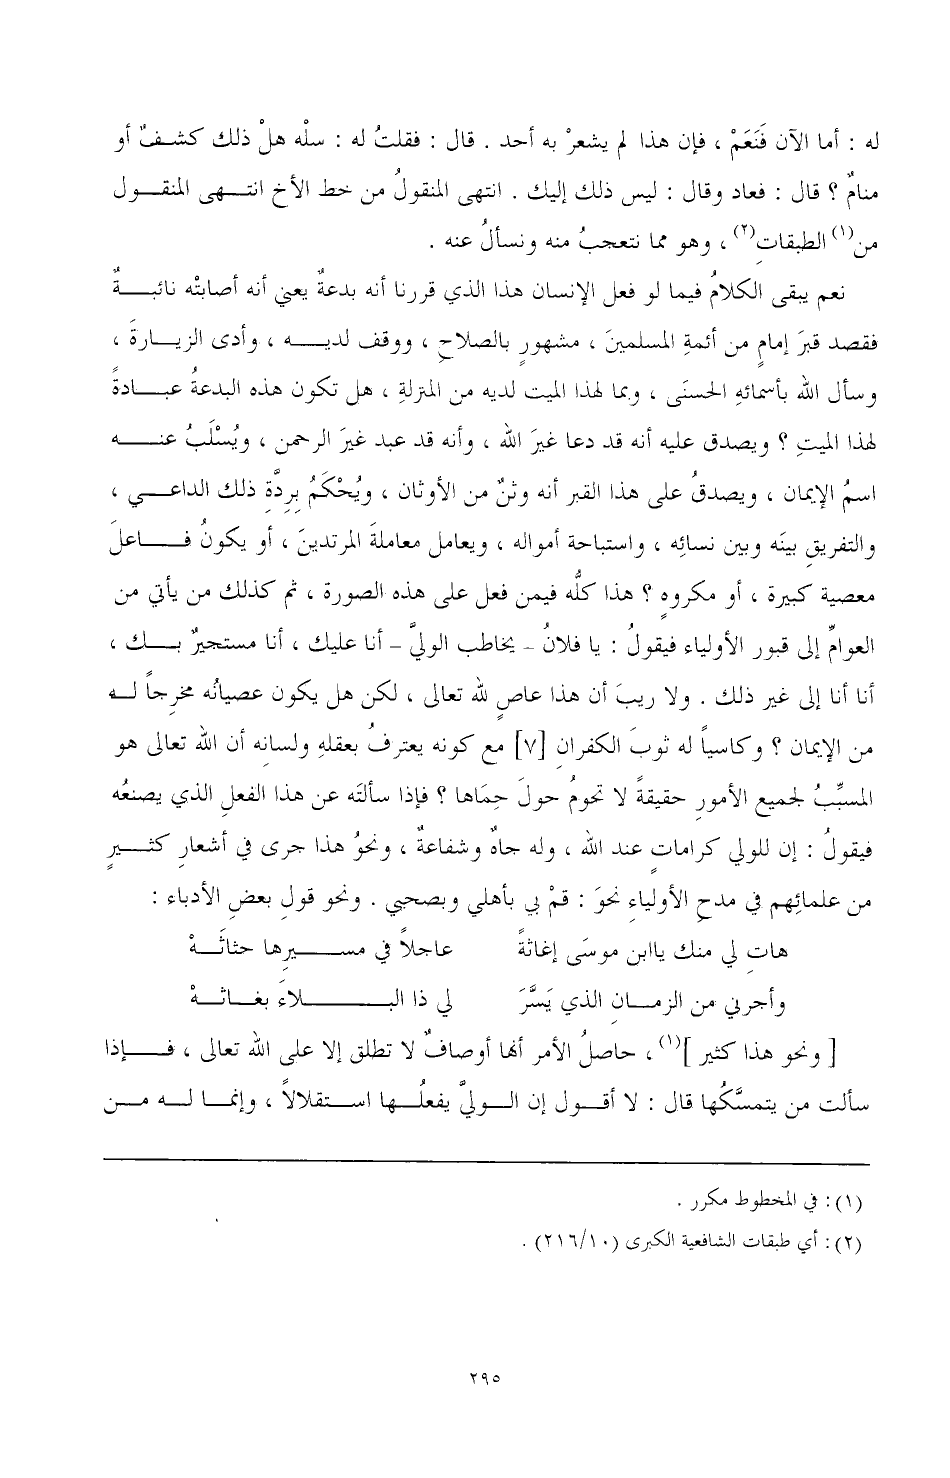 له : أما الآن فَنَعَمْ ، فإن هذا لم يشعرْ به أحد . قال : فقلتُ له : سلْه هلْ ذلك كشفٌ أو
منامٌ ؟ قال : فعاد وقال : ليس ذلك إليك . انتهى المنقولُ من خط الأخ انتهى المنقول
من(١) الطبقاتِ(٢) ، وهو مما نتعجبُ منه ونسألُ عنه .
نعم يبقى الكلامُ فيما لو فعل الإنسان هذا الذي قررنا أنه بدعةٌ يعني أنه أصابتْه نائبةٌ
فقصد قبرَ إمامٍ من أئمةِ المسلمينَ ، مشهورٍ بالصلاحِ ، ووقف لديه ، وأدى الزيارةَ ،
وسأل الله بأسمائهِ الحسنَى ، وبما لهذا الميت لديه من المنزلةِ ، هل تكون هذه البدعةُ عبادةً
لهذا الميتِ ؟ ويصدق عليه أنه قد دعا غيرَ الله ، وأنه قد عبد غيرَ الرحمن ، ويُسْلَبُ عنه
اسمُ الإيمان ، ويصدقُ على هذا القبر أنه وثنٌ من الأوثان ، ويُحْكَمُ بِرِدَّةِ ذلك الداعي ،
والتفريقِ بينَه وبين نسائِه ، واستباحة أمواله ، ويعامل معاملةَ المرتدينَ ، أو يكونُ فاعلَ
معصية كبيرة ، أو مكروهٍ ؟ هذا كلُّه فيمن فعل على هذه الصورة ، ثم كذلك من يأتي من
العوامِّ إلى قبور الأولياء فيقولُ : يا فلانُ - يخاطب الوليَّ - أنا عليك ، أنا مستجيرٌ بك ،
أنا أنا إلى غير ذلك . ولا ريبَ أن هذا عاصٍ لله تعالى ، لكن هل يكون عصيانُه مخرجاً له
من الإيمان ؟ وكاسياً له ثوبَ الكفرانِ [٧] مع كونه يعترفُ بعقلهِ ولسانه أن الله تعالى هو
المسبِّبُ لجميع الأمورِ حقيقةً لا تحومُ حولَ حِمَاها ؟ فإذا سألتَه عن هذا الفعل الذي يصنعُه
فيقولُ : إن للولي كراماتٍ عند الله ، وله جاهٌ وشفاعةٌ ، ونحوُ هذا جرى في أشعارِ كثيرٍ
من علمائِهم في مدحِ الأولياءِ نحوَ : قمْ بي بأهلي وبصحبي . ونحو قولِ بعضِ الأدباء :
هاتِ لي منك ياابن موسَى إغاثةً عاجلاً في مسيرِها حثاثَةْ
وأجرني من الزمانِ الذي يَسَّرَ لي ذا البلاءَ بغاثةْ
[ ونحو هذا كثير ](١) ، حاصلُ الأمر أنها أوصافٌ لا تطلق إلا على الله تعالى ، فإذا
سألت من يتمسَّكُها قال : لا أقول إن الوليَّ يفعلُها استقلالاً ، وإنما له من
(١) : في المخطوط مكرر .
(٢) : أي طبقات الشافعية الكبرى (٢١٦/١٠) .
٢٩٥